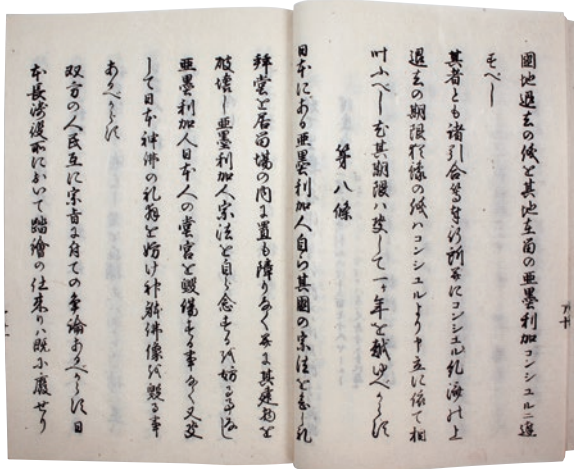 國地退去の儀を其地在留の亜墨利加コンシュルニ達
すへし
其者とも諸引合等奉行所并にコンシュル糺済の上
退去の期限猶豫の儀ハコンシュルより申立に依て相
叶ふへし尤其期限ハ決して一ヶ年を越ゆへからす
第八條
日本にある亜墨利加人自ら其國の宗法を念し礼
拝堂を居留場の内に置も障りなく并に其建物を
破壊し亜墨利加人宗法を自ら念するを妨る事なし
亜墨利加人日本人の堂宮を毀傷する事なく又決
して日本神佛の礼拝を妨け神躰佛像を毀る事
あるへからす
双方の人民互に宗旨に付ての争論あるへからす日
本長崎役所において踏繪の仕来りハ既に廢せり